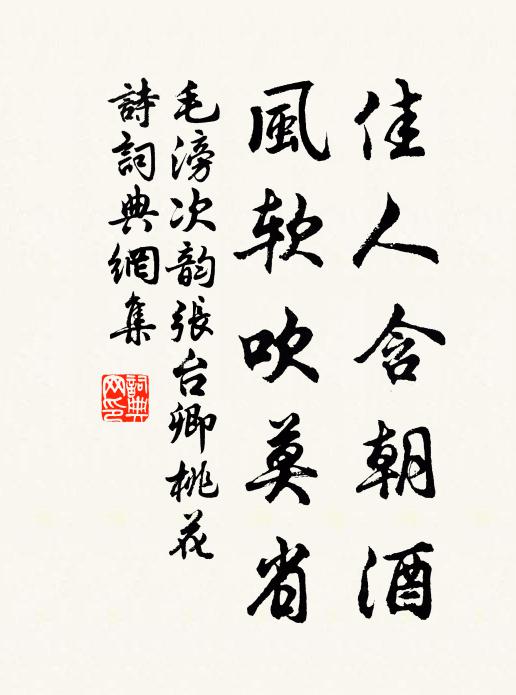 佳人含朝酒
風軟吹莫省
毛滂次韵張台卿桃花
詩詞典網集
詞典网印